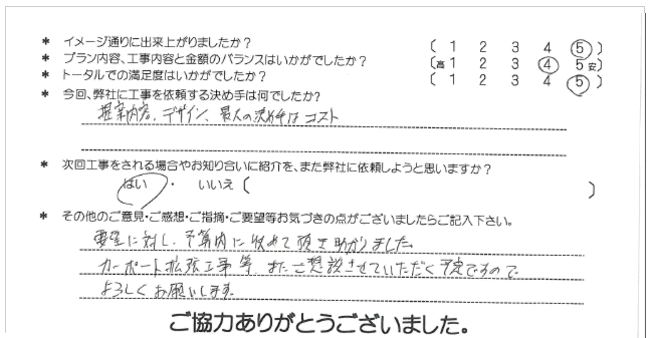 * イメージ通りに出来上がりましたか? ( 1 2 3 4 5 )
* プラン内容、工事内容と金額のバランスはいかがでしたか? (高 1 2 3 4 5 安)
* トータルでの満足度はいかがでしたか? ( 1 2 3 4 5 )
* 今回、弊社に工事を依頼する決め手は何でしたか?
提案内容、デザイン、最大の決め手はコスト
* 次回工事をされる場合やお知り合いに紹介を、また弊社に依頼しようと思いますか?
はい ・ いいえ ( )
* その他のご意見・ご感想・ご指摘・ご要望等お気づきの点がございましたらご記入下さい。
要望に対し、予算内に収めて頂き助かりました。
カーポート拡張工事等、またご相談させていただく予定ですので
よろしくお願いします。
ご協力ありがとうございました。